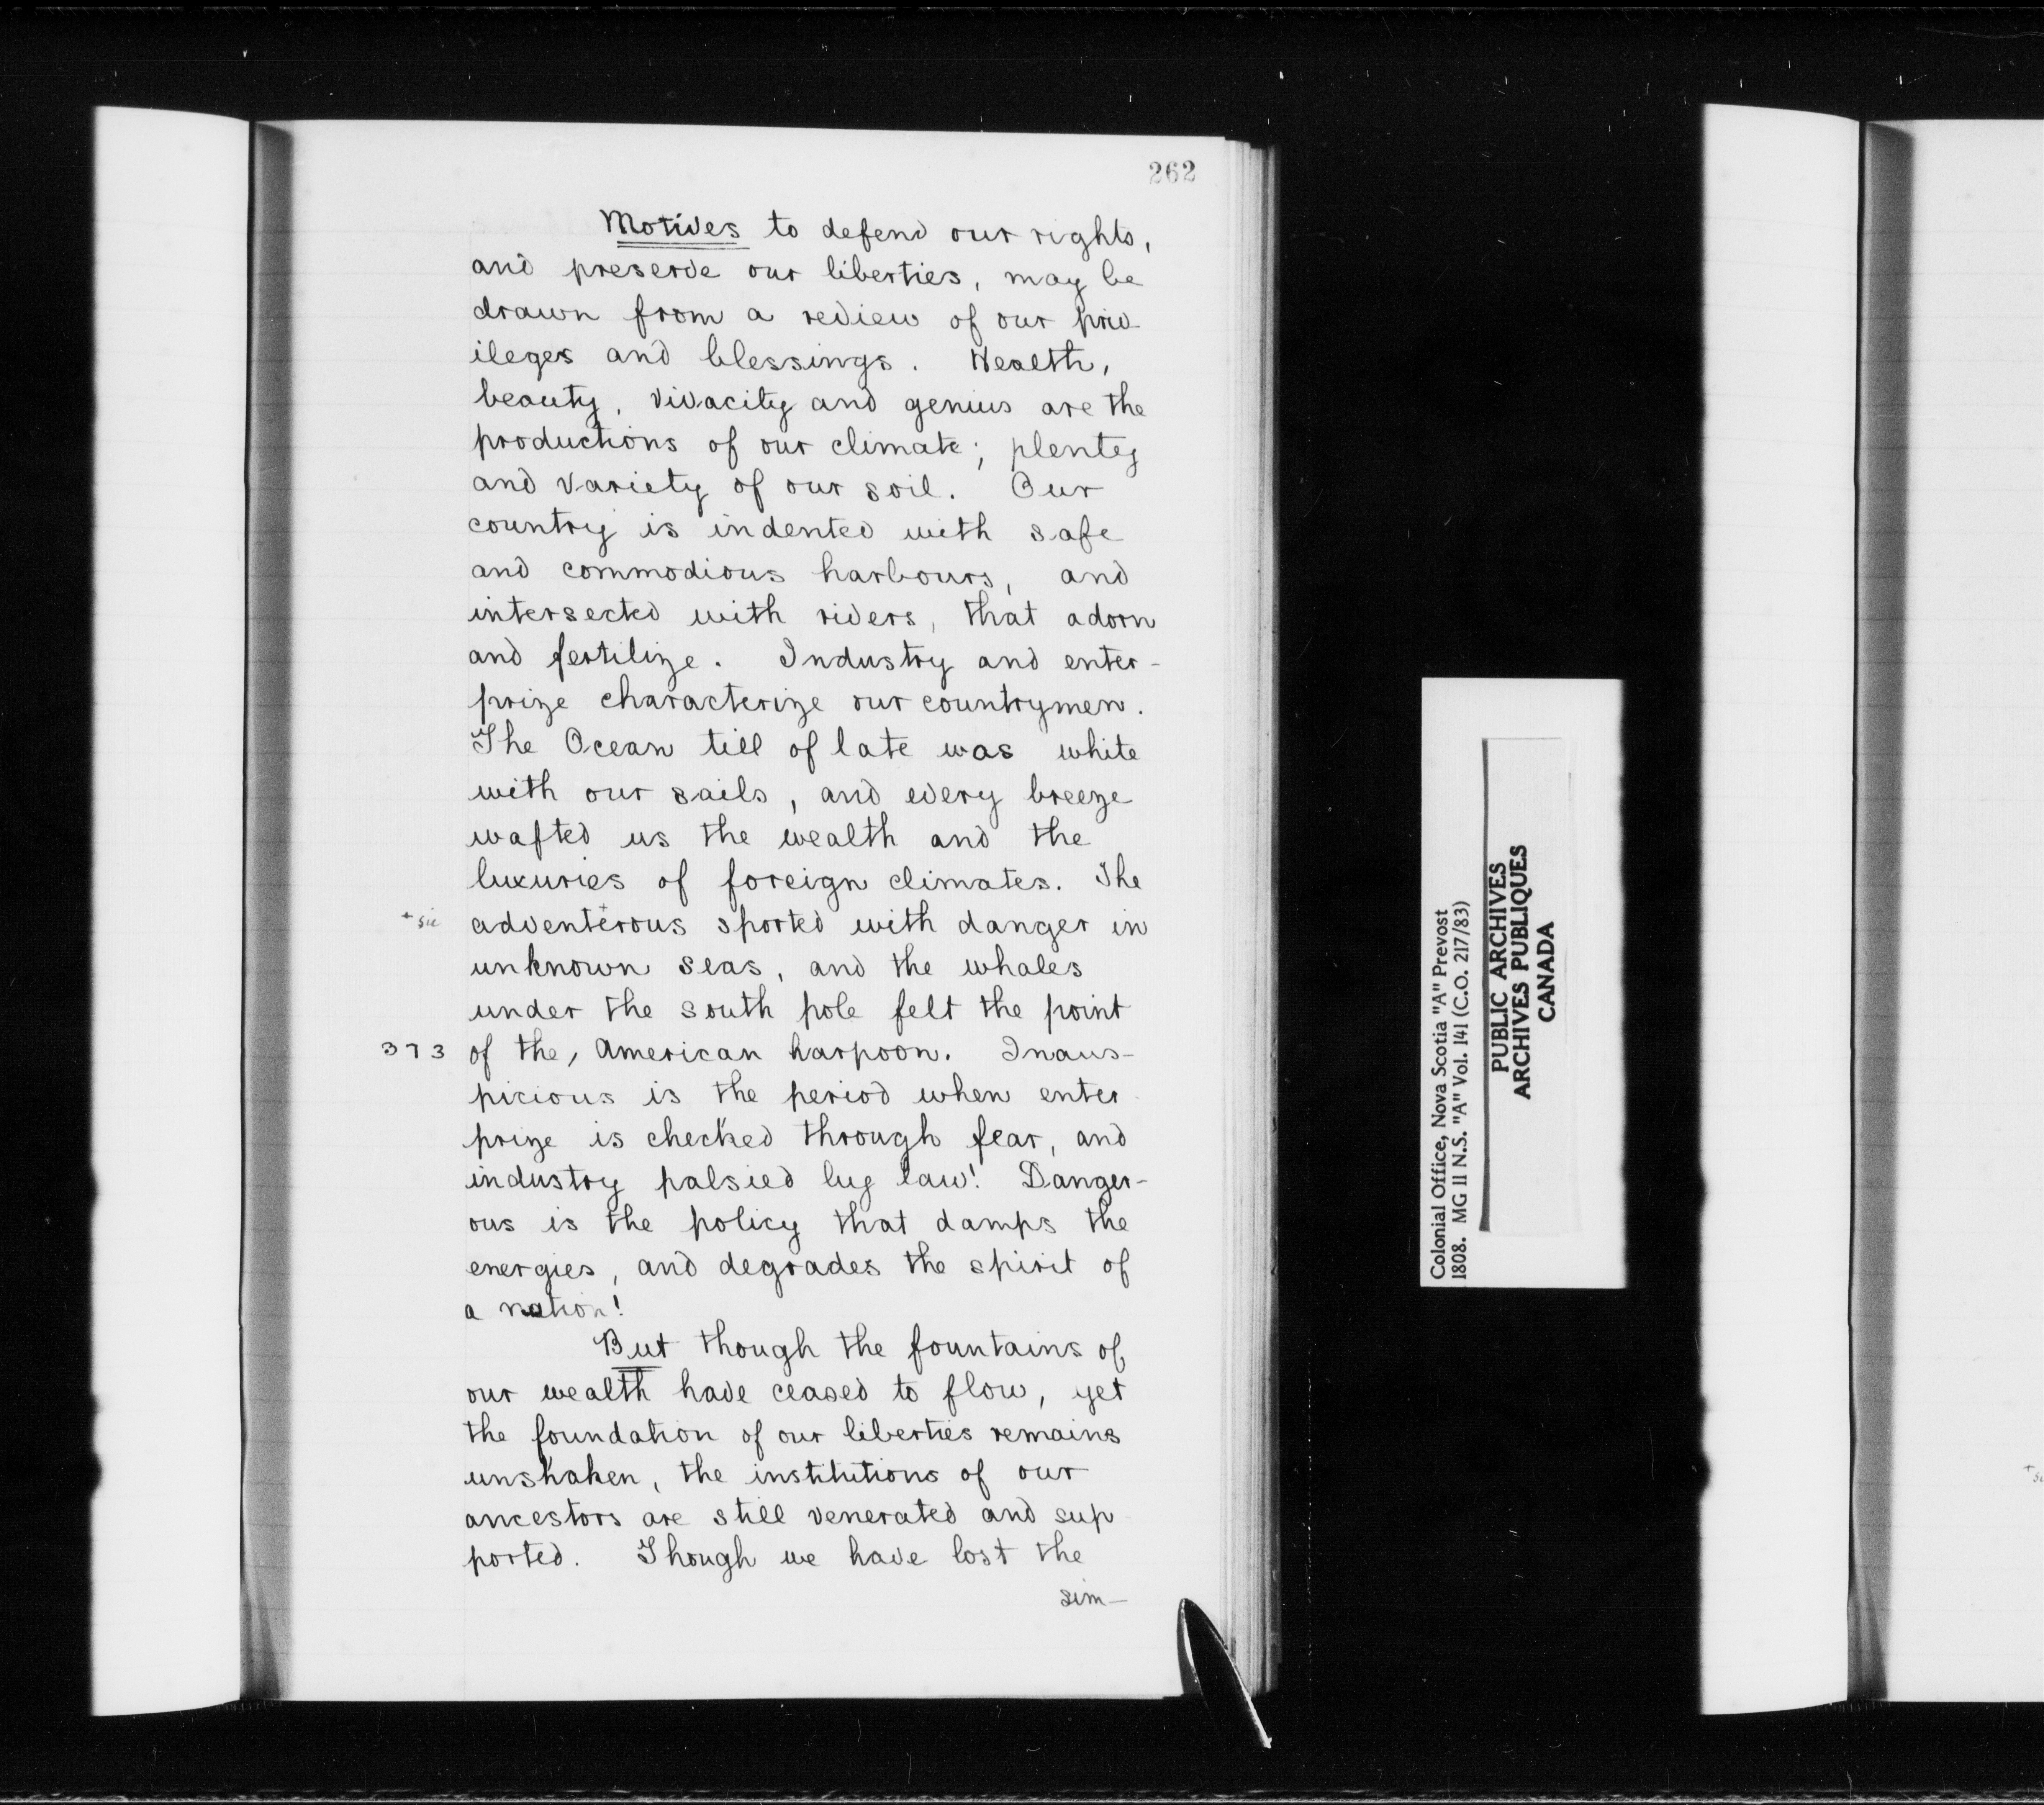 262
Motives to defend our rights,
and preserve our liberties, may be
drawn from a review of our priv
ileges and blessings. Health,
beauty, vivacity and genius are the
productions of our climate; plenty
and variety of our soil. Our
country is indented with safe
and commodious harbours, and
intersected with rivers, that adorn
and fertilize. Industry and enter-
prize characterize our countrymen.
The Ocean till of late was white
with our sails, and every breeze
wafted us the wealth and the
luxuries of foreign climates. The
+ sic adventerous + sported with danger in
unknown seas, and the whales
under the south pole felt the point
373 of the, American harpoon. Inaus-
picious is the period when enter
prize is checked through fear, and
industry palsied by law! Danger-
ous is the policy that damps the
energies, and degrades the spirit of
a nation!
But though the fountains of
our wealth have ceased to flow, yet
the foundation of our liberties remains
unshaken, the institutions of our
ancestors are still venerated and sup
ported. Though we have lost the
sim-
Colonial Office, Nova Scotia "A" Prevost
1808. MG 11 N.S. "A" Vol. 141 (C.O. 217/83)
PUBLIC ARCHIVES
ARCHIVES PUBLIQUES
CANADA